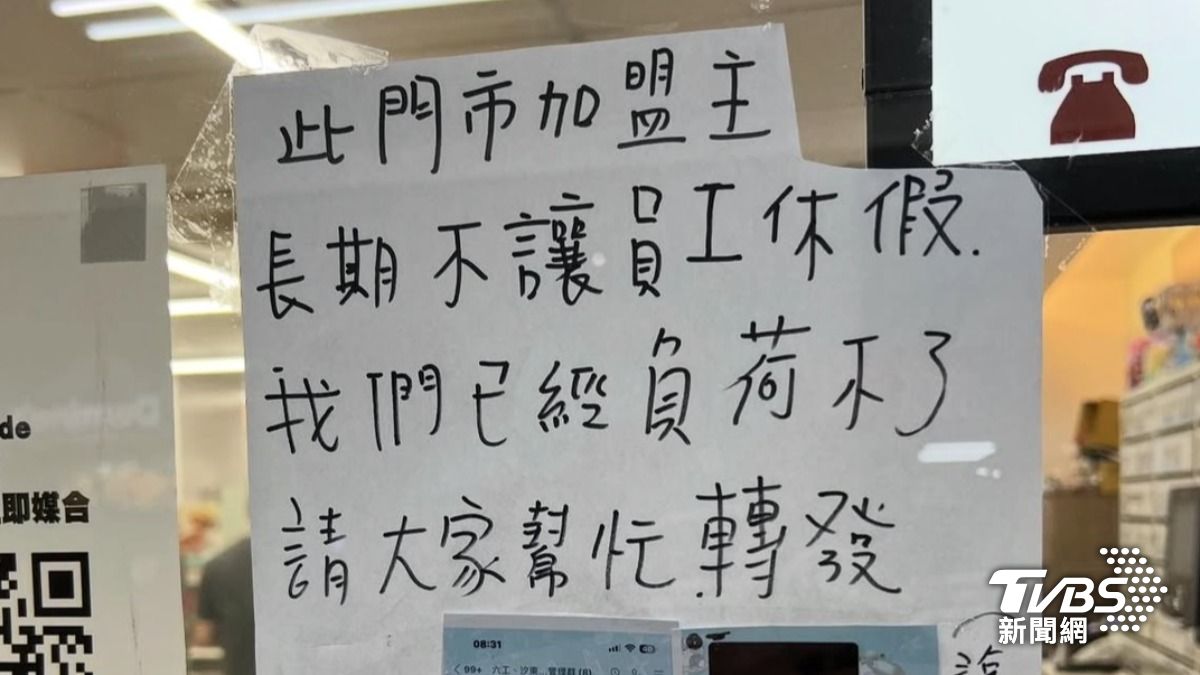 此門市加盟主
長期不讓員工休假.
我們已經負荷不了
請大家幫忙.轉發
de
即媒合
08:31
99+ 六工、汐東...管理群(8)
TVBS
新聞網